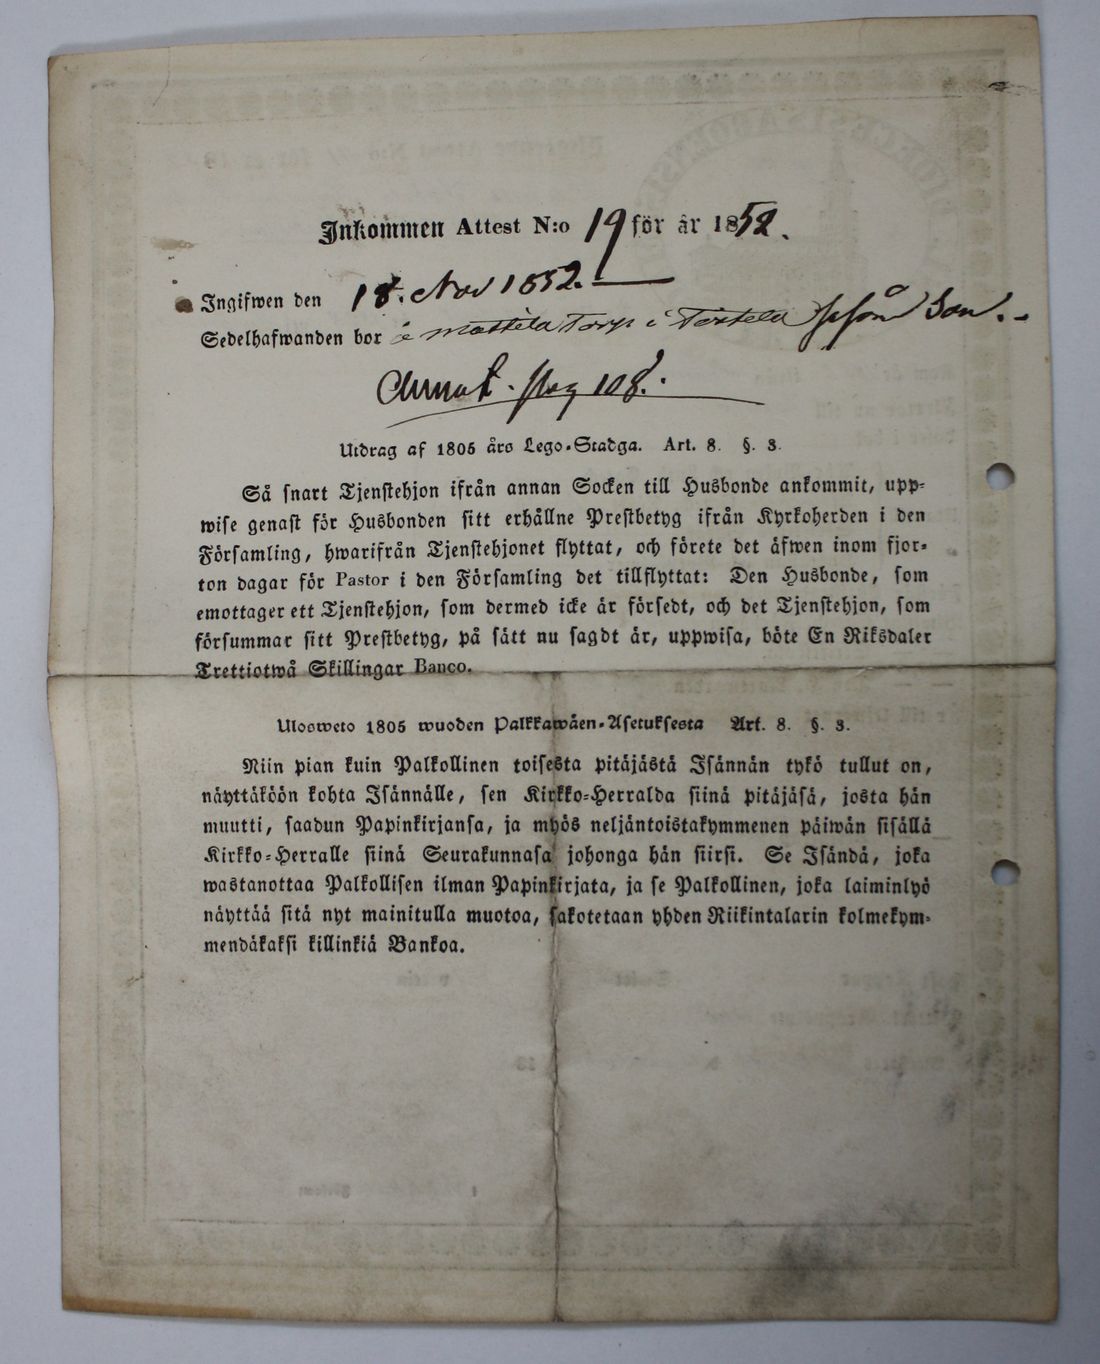 Inkommen Attest N:o 19 för år 1852.
Ingifwen den 18. Nov 1852.
Sedelhafwanden bor å Mattila Torp i
pag 108.
Utdrag af 1805 års Lego-Stadga. Art. 8. §. 3.
Så snart Tjenstehjon ifrån annan Socken till Husbonde ankommit, upp-
wise genast för Husbonden sitt erhållne Prestbetyg ifrån Kyrkoherden i den
Församling, hwarifrån Tjenstehjonet flyttat, och förete det äfwen inom fjor-
ton dagar för Pastor i den Församling det tillflyttat: Den Husbonde, som
emottager ett Tjenstehjon, som dermed icke är försedt, och det Tjenstehjon, som
försummar sitt Prestbetyg, på sätt nu sagdt är, uppwisa, böte En Riksdaler
Trettiotwå Skillingar Banco.
Ulosweto 1805 wuoden Palkkawäen-Asetuksesta Art. 8. §. 3.
Niin pian kuin Palkollinen toisesta pitäjästä Isännän tykö tullut on,
näyttäköön kohta Isännälle, sen Kirkko-Herralda siinä pitäjäsä, josta hän
muutti, saadun Papinkirjansa, ja myös neljäntoistakymmenen päiwän sisällä
Kirkko-Herralle siinä Seurakunnasa johonga hän siirsi. Se Isändä, joka
wastanottaa Palkollisen ilman Papinkirjata, ja se Palkollinen, joka laiminlyö
näyttää sitä nyt mainitulla muotoa, sakotetaan yhden Riikintalarin kolmekym-
mendäkaksi killinkiä Bankoa.